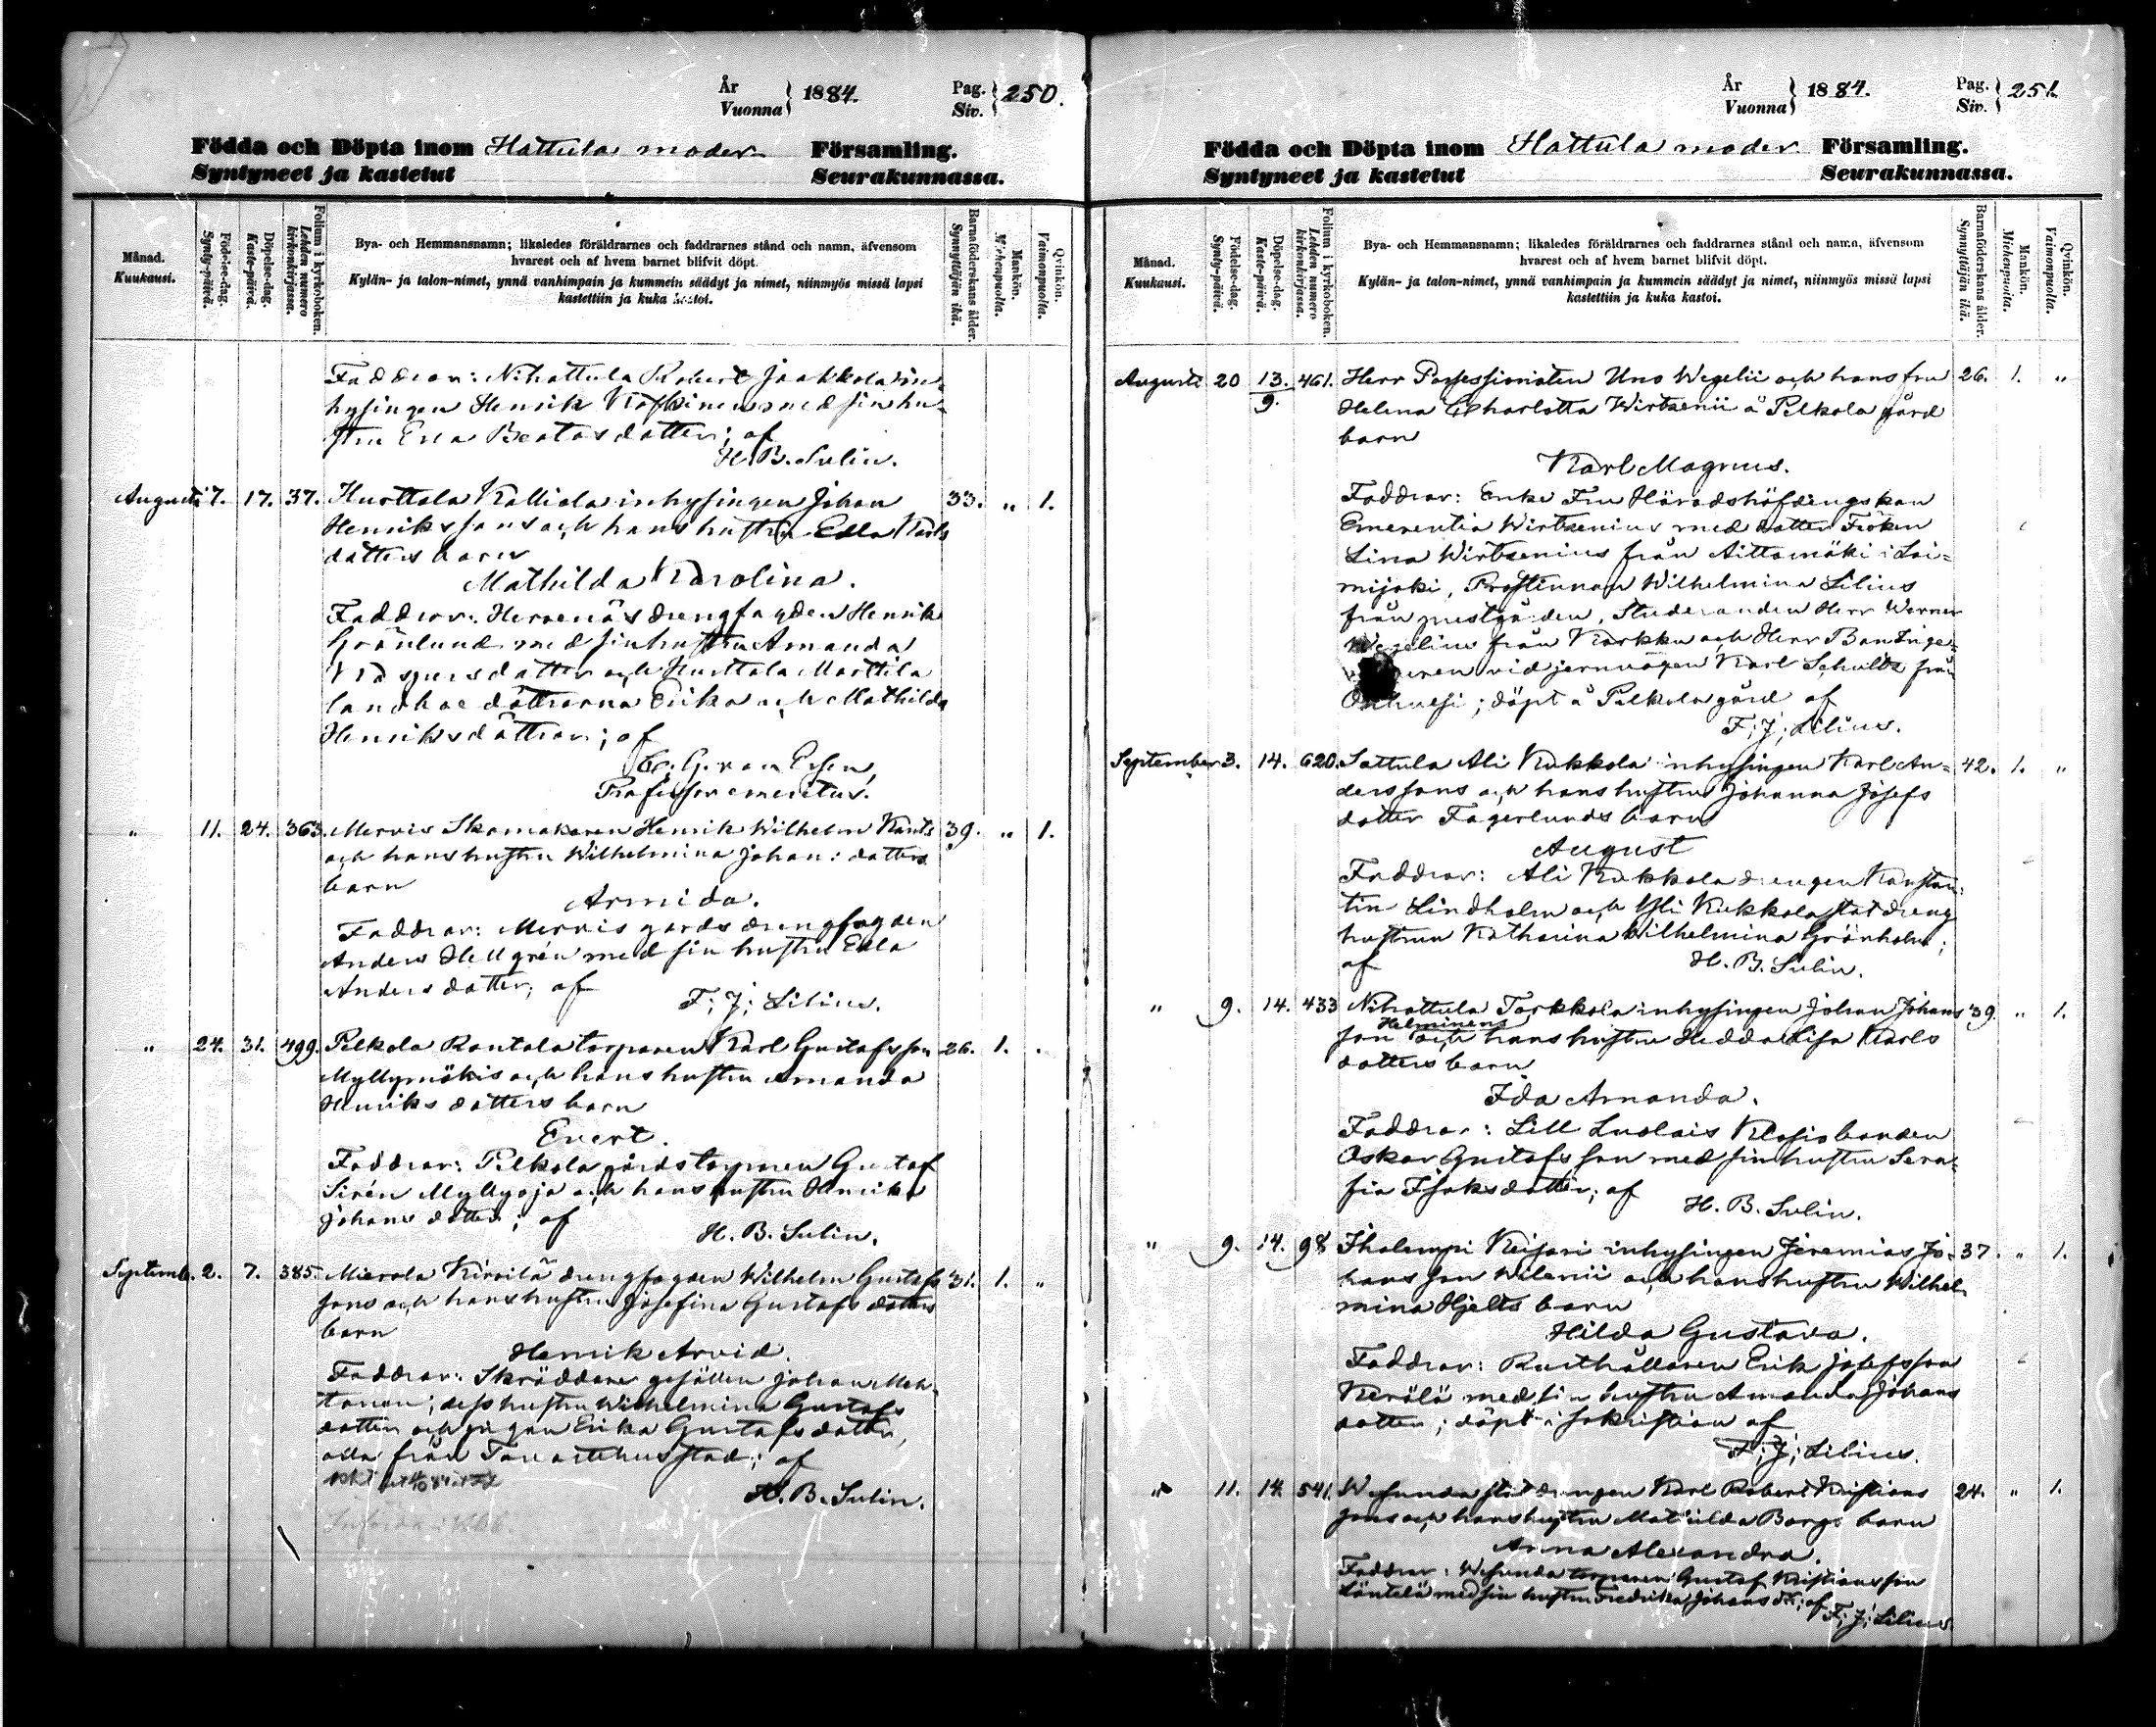 År
Vuonna 1884.
Pag.
Siv. 250.
Födda och Döpta inom Hattula moder Församling.
Syntyneet ja kastetut Seurakunnassa.
Månad.
Kuukausi.
Födelse-dag.
Synty-päivä.
Döpelse-dag.
Kaste-päivä.
Folium i kyrkoboken.
Lehden numero kirkonkirjassa.
Bya- och Hemmansnamn; likaledes föräldrarnes och faddrarnes stånd och namn, äfvensom
hvarest och af hvem barnet blifvit döpt.
Kylän- ja talon-nimet, ynnä vanhimpain ja kummein säädyt ja nimet, niinmyös missä lapsi
kastettiin ja kuka kastoi.
Barnaföderskans ålder.
Synnyttäjän ikä.
Mankön.
Miehenpuolta.
Qvinkön.
Vaimonpuolta.
Faddrar: Nihattula Robert Jaakkola in-
hysingen Henrik med sin hu-
stru Eva Beatasdotter; af
H. B. Sulin.
Augusti 7. 17. 37. Hurttala Kalliola inhysingen Johan 33. " 1.
Henrikssons och hans hustru Edla Karls
dotters barn
Mathilda Karolina.
Faddrar: Herrenäs drengfogden Henrik
Grönlund med sin hustru Amanda
Kaspersdotter och Hurttala Marttila
landboedöttrarna Erika och Mathilda
Henriksdöttrar; af
C. G. von Essen,
Professor emeritus.
" 11. 24. 363. Mervis Skomakaren Henrik Wilhelm Kants 39. " 1.
och hans hustru Wilhelmina Johan: dotters
barn
Armida.
Faddrar: Mervis gårds drengfogden
Anders Hellgrén med sin hustru Edla
Andersdotter; af
F; J; Lilius.
" 24. 31. 499. Pelkola Rantala torparen Karl Gustafsson 26. 1. "
Myllymäkis och hans hustru Amanda
Henriksdotters barn
Evert.
Faddrar: Pelkola gårds torparen Gustaf
Sirén Myllyoja och hans hustru Henrika
Johansdotter; af
H. B. Sulin.
Septemb. 2. 7. 385. Mierola Kirrilä drengfogden Wilhelm Gustafs 31. 1. "
sons och hans hustru Josefina Gustafsdotters
barn
Henrik Arvid.
Faddrar: Skräddare gesällen Johan Meh-
tonen; dess hustru Wilhelmina Gustafs
dotter och pigan Erika Gustafsdotter,
alla från Tavastehus stad; af
H. B. Sulin.
År
Vuonna 1884.
Pag.
Siv. 251.
Födda och Döpta inom Hattula moder Församling.
Syntyneet ja kastetut Seurakunnassa.
Månad.
Kuukausi.
Födelse-dag.
Synty-päivä.
Döpelse-dag.
Kaste-päivä.
Folium i kyrkoboken.
Lehden numero kirkonkirjassa.
Bya- och Hemmansnamn; likaledes föräldrarnes och faddrarnes stånd och namn, äfvensom
hvarest och af hvem barnet blifvit döpt.
Kylän- ja talon-nimet, ynnä vanhimpain ja kummein säädyt ja nimet, niinmyös missä lapsi
kastettiin ja kuka kastoi.
Barnaföderskans ålder.
Synnyttäjän ikä.
Mankön.
Miehenpuolta.
Qvinkön.
Vaimonpuolta.
Augusti 20 13./9. 461. Herr Possessionaten Uno Wegelii och hans fru 26. 1. "
Helena Charlotta Wirtzenii å Pelkola gård
barn
Karl Magnus.
Faddrar: Enke Fru Häradshöfdingskan
Emerentia Wirtzenius med dotter Fröken
Lina Wirtzenius från Aittamäki i Loi-
mijoki, Prostinnan Wilhelmina Lilius
från prestgården, Studeranden Herr Werner
Wegelius från Karkku och Herr Ban Inge-
vid jernvägen Karl Schultz från
; döpt å Pelkola gård af
F; J; Lilius.
September 3. 14. 620. Sattula Ali Kukkola inhysingen Karl An- 42. 1. "
derssons och hans hustrus Johanna Josefs
dotter Fagerlunds barn
August
Faddrar: Ali Kukkola drengen Konstan-
tin Lindholm och Yli Kukkola statdreng
hustrun Katharina Wilhelmina Grönholm;
af H. B. Sulin.
" 9. 14. 433 Nihattula Torkkola inhysingen Johan Johans 39. " 1.
Helminens
son och hans hustru Hedda Lisa Karls
dotters barn
Ida Amanda.
Faddrar: Lill Luolais Klasis bonden
Oskar Gustafsson med sin hustru Sera-
fia Isaksdotter; af
H. B. Sulin.
" 9. 14. 98 Ihalempi Keisari inhysingen Jeremias Jo- 37. " 1.
hansson Wilenii och hans hustru Wilhel-
mina Hjelts barn
Hilda Gustava.
Faddrar: Rusthållaren Erik Josefsson
Kerälä med sin hustru Amanda Johans
dotter; döpt i sakristian af
F; J; Lilius.
" 11. 14. 541. Wesunda statdrengen Karl Robert Kristians 24. " 1.
sons och hans hustru Mathilda Borgs barn
Anna Alexandra.
Faddrar: Wesunda torparen Gustaf Kristiansson
Läntelä med sin hustru Fredrika Johans dr; af
F; J; Lilius.